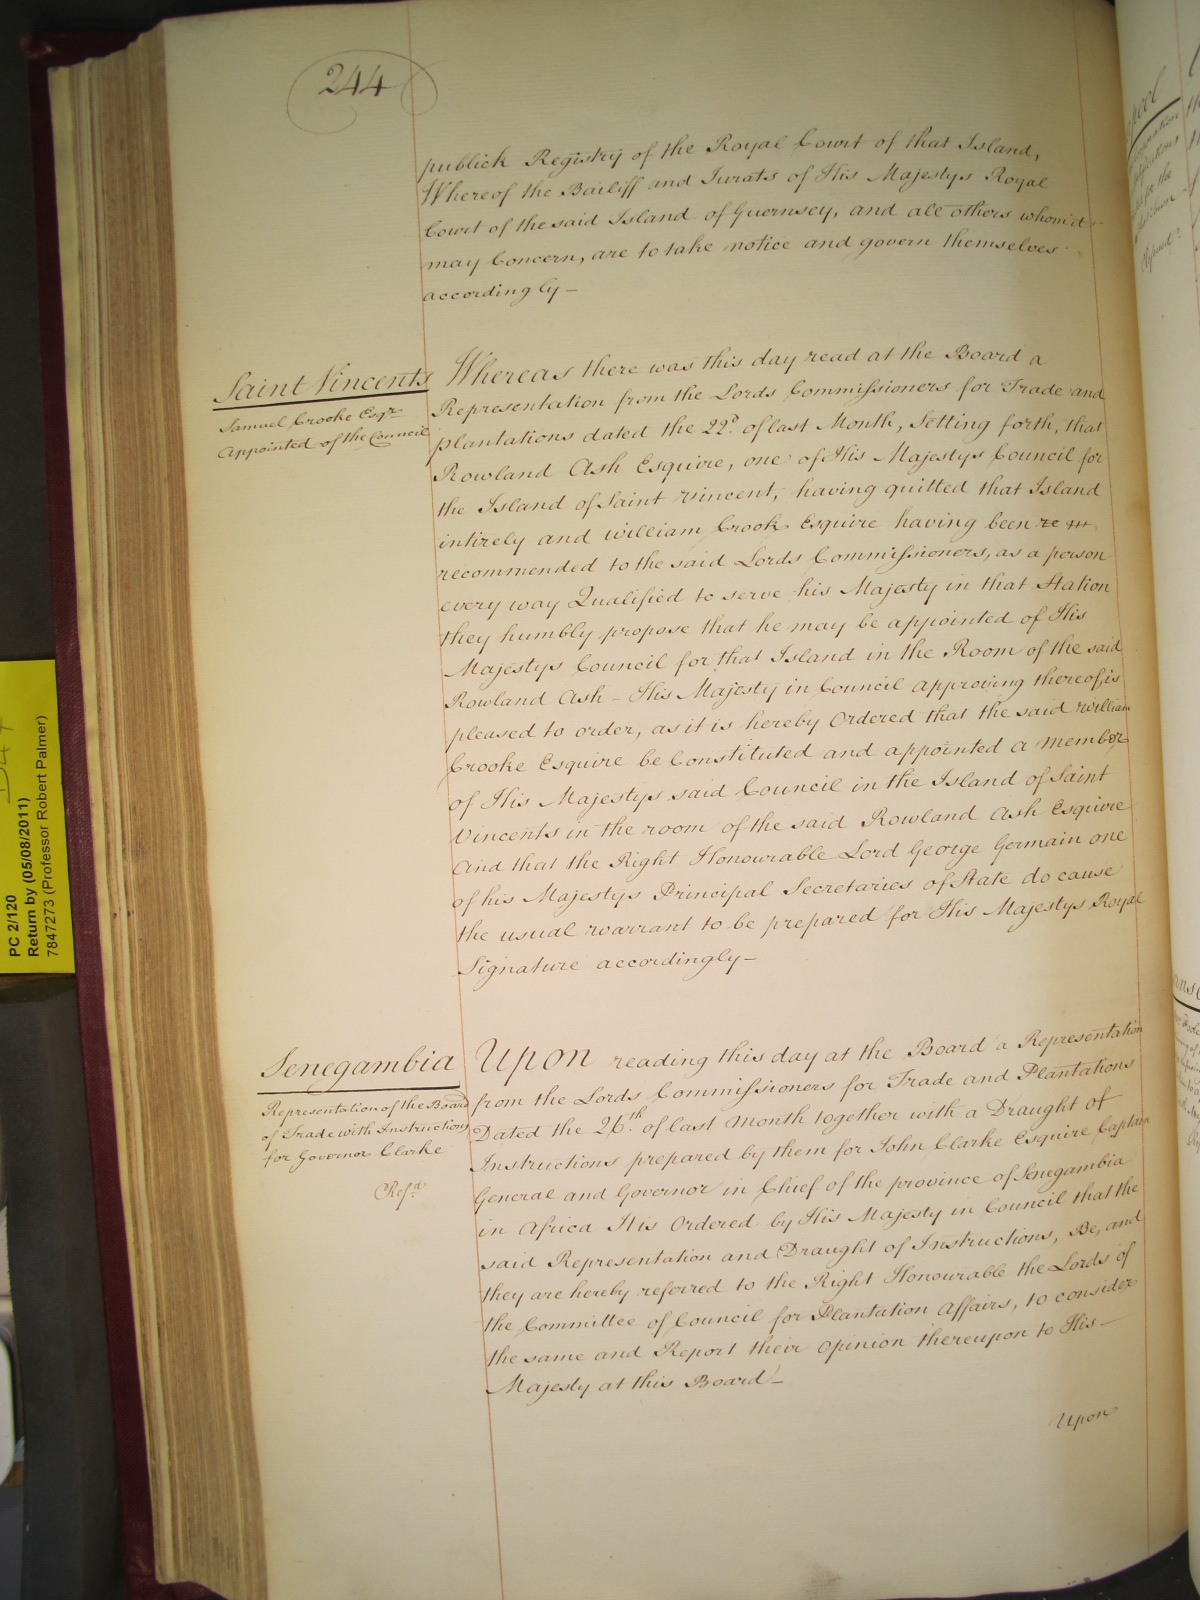 244
publick Registry of the Royal Court of that Island,
Whereof the Bailiff and Jurats of His Majestys Royal
Court of the said Island of Guernsey, and all others whom it
may Concern, are to take notice and govern themselves
accordingly—
Saint Vincents
Samuel Crooke Esqr.
Appointed of the Council
Whereas there was this day read at the Board a
Representation from the Lords Commissioners for Trade and
plantations dated the 22d. of last Month, Setting forth, that
Rowland Ash Esquire, one of His Majestys Council for
the Island of Saint Vincent, having quitted that Island
intirely and William Crook Esquire having been re
recommended to the said Lords Commissioners, as a person
every way Qualified to serve his Majesty in that Station
they humbly propose that he may be appointed of His
Majestys Council for that Island in the Room of the said
Rowland Ash – His Majesty in Council approving thereof, is
pleased to order, as it is hereby Ordered that the said William
Crooke Esquire be Constituted and appointed a member
of His Majestys said Council in the Island of Saint
Vincents in the room of the said Rowland Ash Esquire
And that the Right Honourable Lord George Germain one
of his Majestys Principal Secretaries of State do cause
the usual warrant to be prepared for His Majestys Royal
Signature accordingly—
Senegambia
Representation of the Board
of Trade with Instructions
for Governor Clarke
Refd.
Upon reading this day at the Board a Representation
from the Lords Commissioners for Trade and Plantations
Dated the 26th. of last Month together with a Draught of
Instructions prepared by them for John Clarke Esquire Captain
General and Governor in Chief of the province of Senegambia
in Africa It is Ordered by His Majesty in Council that the
said Representation and Draught of Instructions, Be, and
they are hereby referred to the Right Honourable the Lords of
the Committee of Council for Plantation Affairs, to consider
the same and Report their Opinion thereupon to His—
Majesty at this Board—
Upon
PC 2/120
Return by (05/08/2011)
7847273 (Professor Robert Palmer)